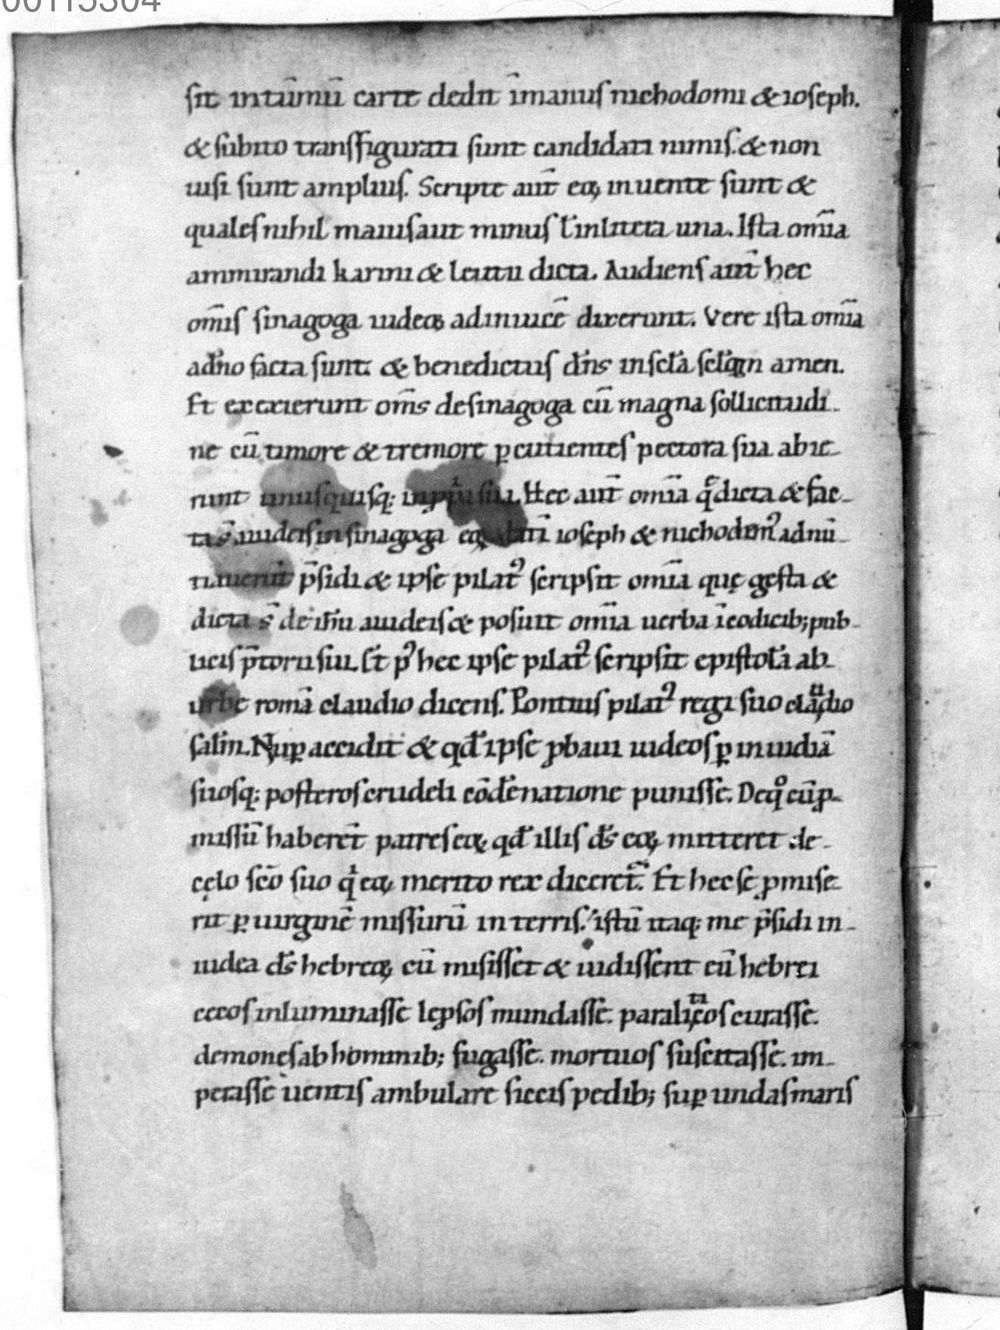 00115304
ſit intāmū carte dedit īmanuſ nichodomi & ioſeph.
& ſubito tranſfigurati ſunt candidati nimiſ. & non
uiſi ſunt ampliuſ. Scripte aut̄ eoꝝ inuente ſunt &
qualeſ nihil maiuſ aut minuſ ł in littera una. Iſta om̄ia
ammirandi karini & leutii dicta. Audienſ aut̄ hec
om̄iſ ſinagoga iudeoꝝ adinuicē dixerunt. Vere iſta om̄ia
adn̄o facta ſunt. & benedictuſ dn̄s inſcł́a ſcłoꝝ amen.
Et exexierunt om̄s deſinagoga cū magna ſollicitudi
ne cū timore & tremore ꝑcutienteſ pectora ſua abie
runt unuſquiſq; inꝓp̄ū ſuū. Hec aut̄ om̄ia q̄ dicta & fac
ta ſ̄ aiudeiſ in ſinagoga eoꝝ ſtatī ioſeph & nichodemꝰ adnū
tiauerūt p̄ſidi & ipſe pilatꝰ ſcripſit om̄ia quę geſta &
dicta ſ̄ de ih̄u aiudeiſ & poſuit om̄ia uerba īcodicib; pub
liciſ p̄torii ſui. Et pꝰ hec ipſe pilatꝰ ſcripſit epiſtolā ab
urbe romā claudio dicenſ. Pontiuſ pilatꝰ regi ſuo claudio
ſalt̄m. Nuꝑ accidit & qd̄ ipſe ꝓbaui iudeoſ ꝑ inuidiā
ſuoſq; poſteroſ crudeli cōdēnatione puniſſe. Deniq; cū ꝓ
miſſū haberēt patreſ eoꝝ qd̄ illiſ dſ̄ eoꝝ mitteret de
cęlo ſc̄o ſuo qͥ eoꝝ merito rex diceret̄. Et hec ſe ꝓmiſe
rit ꝑ uirginē miſſurū in terriſ. iſtū itaq; me p̄ſidi in
iudea dſ̄ hebreoꝝ cū miſiſſet & uidiſſent eū hebrei
cecoſ inluminaſſe leꝓſoſ mundaſſe. paraliticoſ curaſſe.
demoneſ ab hominib; fugaſſe. mortuoſ ſuſcitaſſe. im
peraſſe uentiſ ambulare ſicciſ pedib; ſuꝑ undaſ mariſ